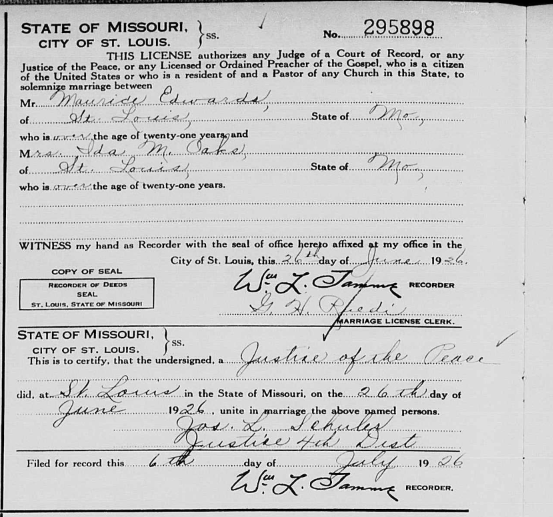 STATE OF MISSOURI,
CITY OF ST. LOUIS. } ss.
No. 295898
THIS LICENSE authorizes any Judge of a Court of Record, or any
Justice of the Peace, or any Licensed or Ordained Preacher of the Gospel, who is a citizen
of the United States or who is a resident of and a Pastor of any Church in this State, to
solemnize marriage between
Mr. Maurice Edwards,
of St. Louis, State of Mo,
who is over the age of twenty-one years, and
Mrs. Ida M. Oaks,
of St. Louis, State of Mo,
who is over the age of twenty-one years.
WITNESS my hand as Recorder with the seal of office hereto affixed at my office in the
City of St. Louis, this 26th day of June, 1926.
COPY OF SEAL
RECORDER OF DEEDS
SEAL
ST. LOUIS, STATE OF MISSOURI
Wm L. Tamme RECORDER
G. H.
MARRIAGE LICENSE CLERK.
STATE OF MISSOURI,
CITY OF ST. LOUIS. } ss.
This is to certify, that the undersigned, a Justice of the Peace
did, at St. Louis in the State of Missouri, on the 26th day of
June 1926, unite in marriage the above named persons.
Jos. L. Schuler
Justice 4th Dist
Filed for record this 6th day of July 1926
Wm L. Tamme RECORDER.